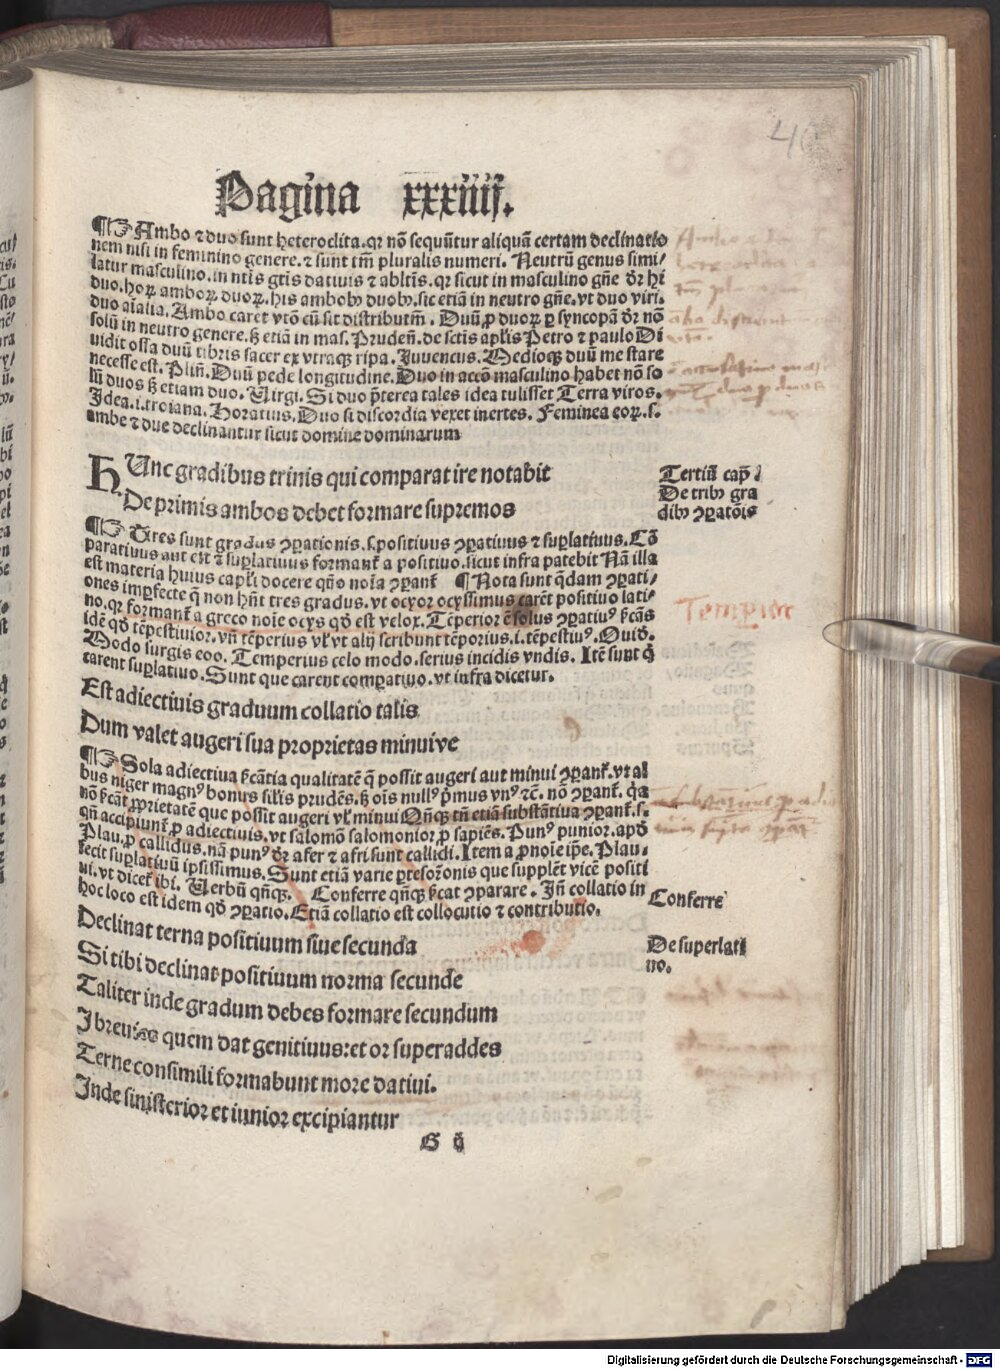 Pagina xxxiiij.
¶ Ambo ⁊ duo sunt heteroclita. qꝛ nō sequūtur aliquā certam declinatio
nem nisi in feminino genere. ⁊ sunt tm̄ pluralis numeri. Neutrū genus simi/
latur masculino. in ntis gtis datiuis ⁊ abltis. qꝛ sicut in masculino gn̄e dr̄ hi
duo. hoꝝ amboꝝ duoꝝ. his ambobꝰ duobꝰ. sic etiā in neutro gn̄e. vt duo viri.
duo aīalia. Ambo caret vtō cū sit distributm̄. Duū, ꝓ duoꝝ ꝑ syncopā dr̄ nō
solū in neutro genere. sꝫ etiā in mas. Pruden̄. de sctis apl̄is Petro ⁊ paulo Di
uidit ossa duū tibris sacer ex vtraqꝫ ripa. Juuencus. Medioqꝫ duū me stare
necesse est. Plin̄. Duū pede longitudine. Duo in accō masculino habet nō so
lū duos sꝫ etiam duo. Virgi. Si duo p̄terea tales idea tulisset Terra viros.
Idea. i. troiana. Horatius. Duo si discordia vexet inertes. Feminea eoꝝ. s.
ambe ⁊ due declinantur sicut domine dominarum
HUnc gradibus trinis qui comparat ire notabit
De primis ambos debet formare supremos
Tertiū cap̄
De tribꝰ gra
dibꝰ ꝯꝑatōis
¶ Tres sunt gradus ꝯꝑationis. s. positiuus ꝯꝑatiuus ⁊ suꝑlatiuus. Cō
paratiuus aut est ⁊ suꝑlatiuus formant̄ a positiuo. sicut infra patebit Nā illa
est materia huius capl̄i docere qn̄o noīa ꝯꝑant̄ ¶ Nota sunt q̄dam ꝯꝑati/
ones imꝑfecte q̄ non hn̄t tres gradus. vt ocyor ocyssimus carēt positiuo lati/
no. qꝛ formant̄ a greco noīe ocys qd̄ est velox. Tēperior ē solus ꝯꝑatiuꝰ ſ̄cās
idē qd̄ tēpestiuior. vn̄ tēperius vl̄ vt alij scribunt tēporius. i. tēpestiuꝰ. Ouid.
Modo surgis eoo. Temperius celo modo. serius incidis vndis. Itē sunt q̄
carent suꝑlatiuo. Sunt que carent comꝑatiuo. vt infra dicetur.
Tempior
Est adiectiuis graduum collatio talis
Dum valet augeri sua proprietas minuive
¶ Sola adiectiua ſ̄cātia qualitatē q̄ possit augeri aut minui ꝯꝑant̄. vt al
bus niger magnꝰ bonus silis prudēs. sꝫ ois nullꝰ p̄mus vnꝰ ⁊c̄. nō ꝯꝑant̄. qꝛ
nō ſ̄cāt ꝓprietatē que possit augeri vl̄ minui Qn̄qꝫ tn̄ etiā substātiua ꝯꝑant̄. s.
qn̄ accipiunt̄ ꝓ adiectiuis. vt salomō salomonior ꝓ sapiēs. Punꝰ punior. apd̄
Plau. ꝓ callidus. nā punꝰ dr̄ afer ⁊ afri sunt callidi. Item a ꝓnoīe ip̄e. Plau/
fecit suꝑlatiuū ipsissimus. Sunt etiā varie p̄tesoꝛonis que supplēt vicē positi
ui. vt dicet̄ ibi. Verbū qn̄qꝫ. Conferre qn̄qꝫ ſ̄cat ꝯparare. Jn̄ collatio in
hoc loco est idem qd̄ ꝯꝑatio. Etiā collatio est collocutio ⁊ contributio.
Conferre
Declinat terna positiuum siue secunda
Si tibi declinat positiuum norma secunde
Taliter inde gradum debes formare secundum
I breuies quem dat genitiuus: et or superaddes
Terne consimili formabunt more datiui.
Inde sinisterior et iunior excipiantur
De superlati
uo.
G ij
Digitalisierung gefördert durch die Deutsche Forschungsgemeinschaft - DFG